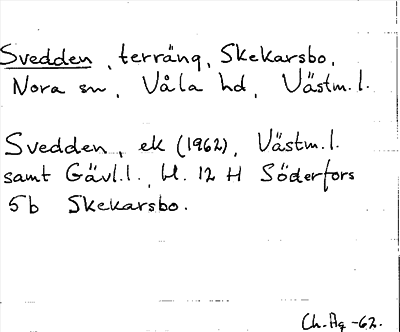 Svedden, terräng, Skekarsbo,
Nora sn, Våla hd, Västm.l.
Svedden, ek (1962), Västm.l.
samt Gävl.l., bl. 12 H Söderfors
5b Skekarsbo.
Ch.Ag -62.